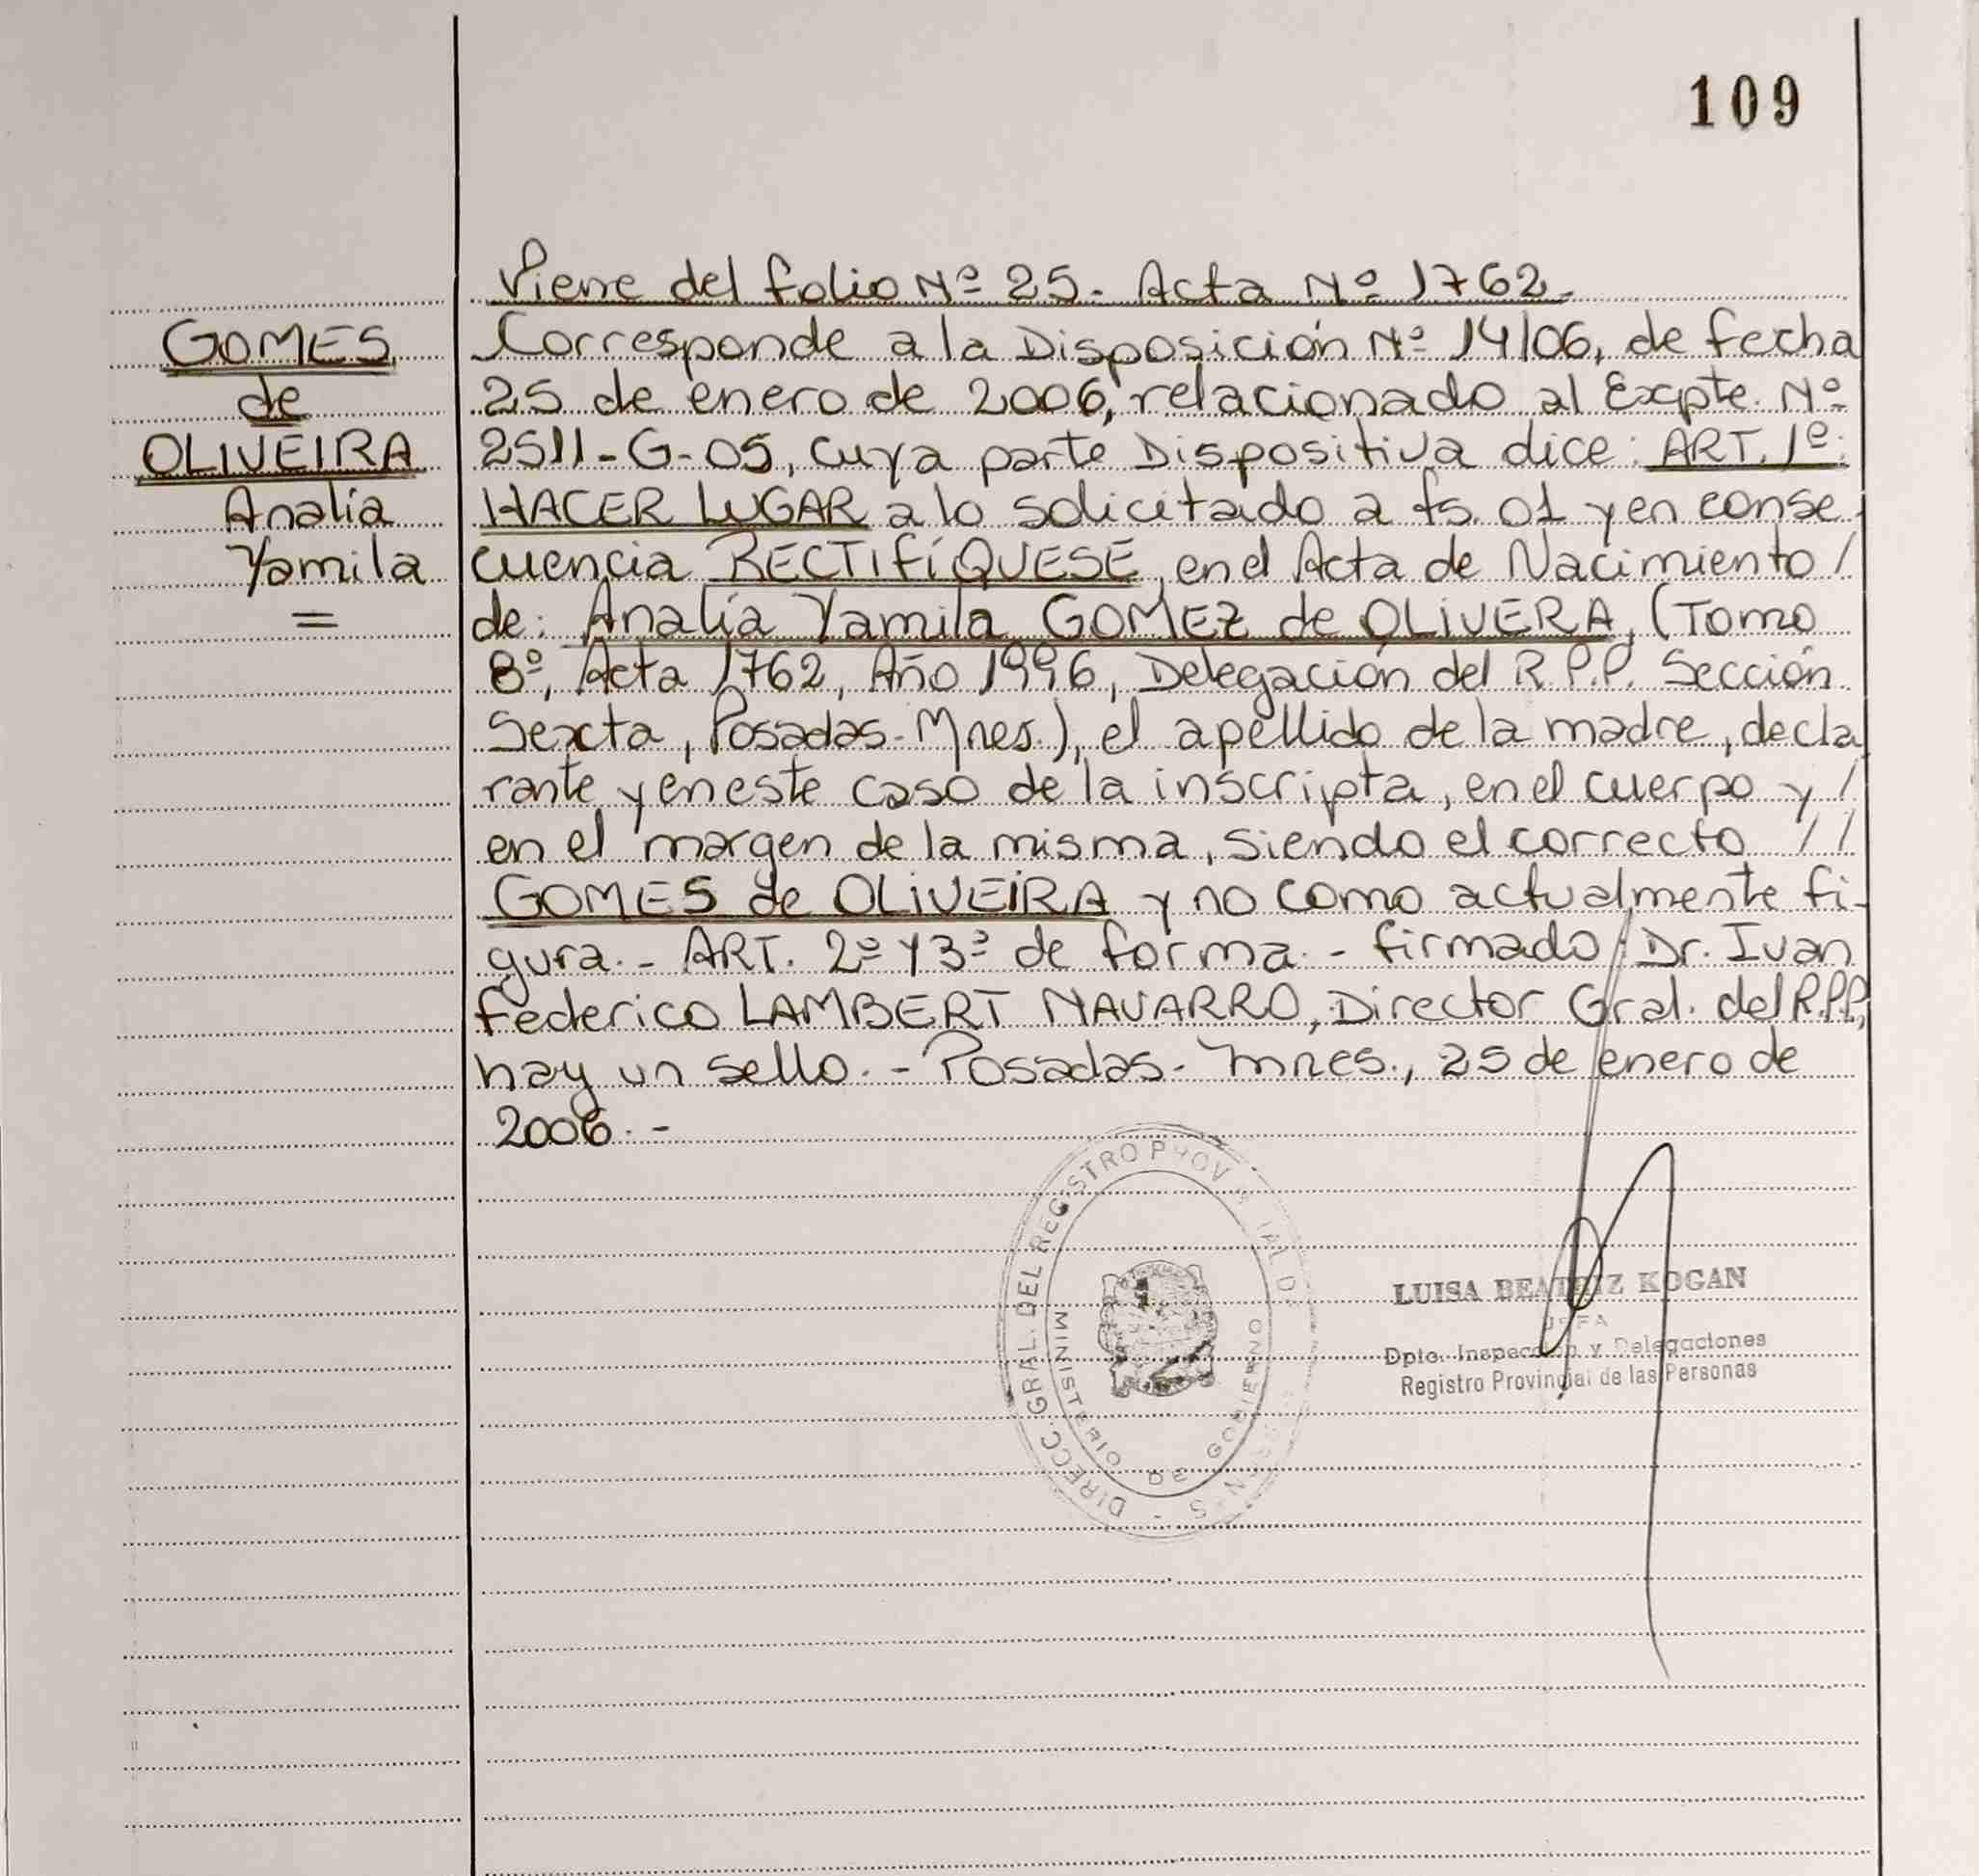 109
GOMES
de
OLIVEIRA
Analía
Yamila
=
Viene del folio Nº 25.- Acta Nº 1762.-
Corresponde a la Disposición Nº 14/06, de fecha
25 de enero de 2006, relacionado al Expte. Nº
2511-G-05, cuya parte Dispositiva dice: ART. 1º:
HACER LUGAR a lo solicitado a fs. 01 y en conse
cuencia RECTIFÍQUESE, en el Acta de Nacimiento /
de: Analía Yamila GOMEZ de OLIVERA, (Tomo
8º, Acta 1762, Año 1996, Delegación del R.P.P. Sección
Sexta, Posadas-Mnes.), el apellido de la madre, decla
rante y en este caso de la inscripta, en el cuerpo y /
en el margen de la misma, siendo el correcto //
GOMES de OLIVEIRA y no como actualmente fi-
gura.- ART. 2º y 3º de forma.- firmado: Dr. Ivan
Federico LAMBERT NAVARRO, Director Gral. del R.P.P,
hay un sello.- Posadas-Mnes., 25 de enero de
2006.-
DIRECC. GRAL. DEL REGISTRO
MINISTERIO DE GOBIERNO
LUISA BEATRIZ KOGAN
JEFA
Dpto. Inspección y Delegaciones
Registro Provincial de las Personas